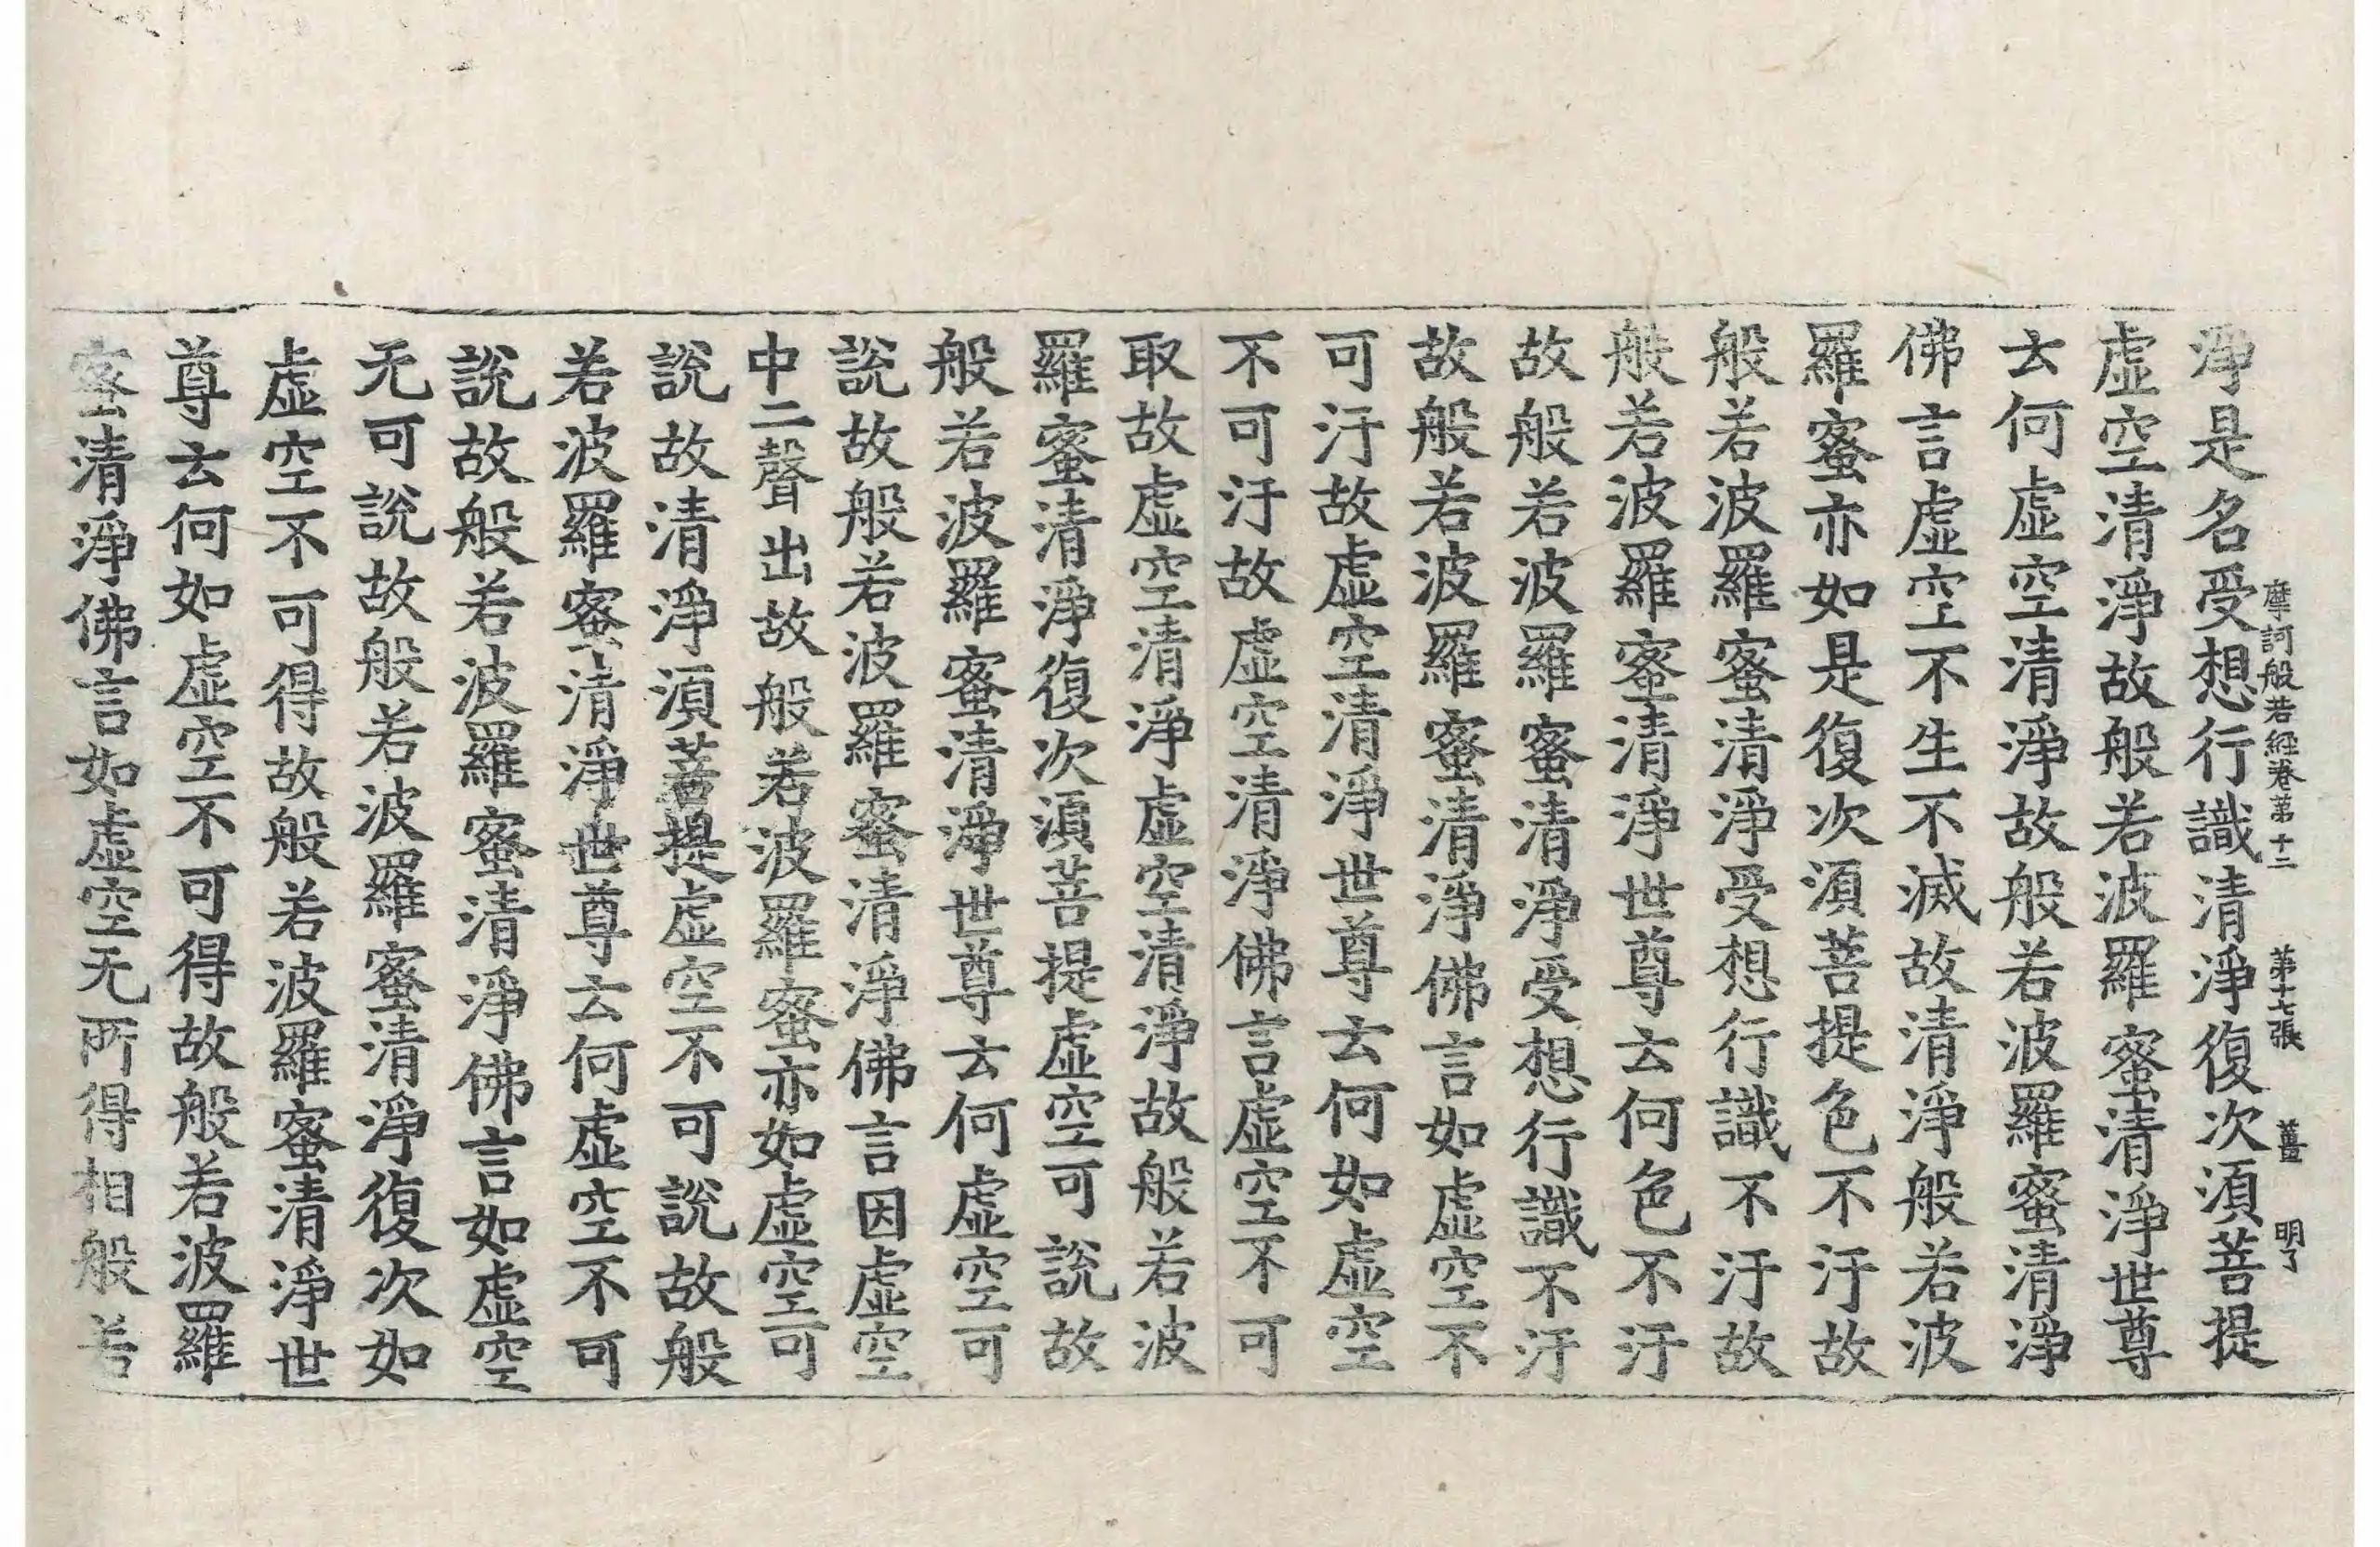 摩訶般若經卷第十二　第十七張　薑　明了
淨是名受想行識清淨復次須菩提
虛空清淨故般若波羅蜜清淨世尊
云何虛空清淨故般若波羅蜜清淨
佛言虛空不生不滅故清淨般若波
羅蜜亦如是復次須菩提色不汙故
般若波羅蜜清淨受想行識不汙故
般若波羅蜜清淨世尊云何色不汙
故般若波羅蜜清淨受想行識不汙
故般若波羅蜜清淨佛言如虛空不
可汙故虛空清淨世尊云何如虛空
不可汙故虛空清淨佛言虛空不可
取故虛空清淨虛空清淨故般若波
羅蜜清淨復次須菩提虛空可說故
般若波羅蜜清淨世尊云何虛空可
說故般若波羅蜜清淨佛言因虛空
中二聲出故般若波羅蜜亦如虛空可
說故清淨須菩提虛空不可說故般
若波羅蜜清淨世尊云何虛空不可
說故般若波羅蜜清淨佛言如虛空
无可說故般若波羅蜜清淨復次如
虛空不可得故般若波羅蜜清淨世
尊云何如虛空不可得故般若波羅
蜜清淨佛言如虛空无所得相般若